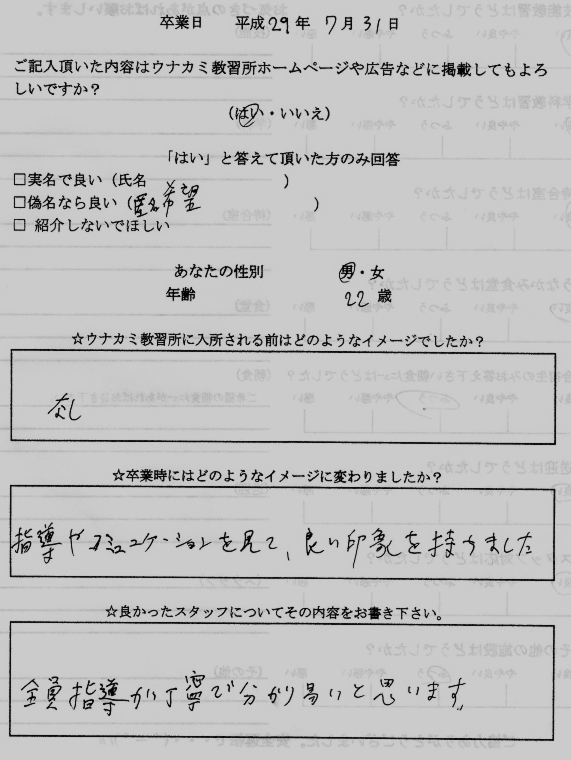 卒業日 平成29年 7月31日
ご記入頂いた内容はウナカミ教習所ホームページや広告などに掲載してもよろ
しいですか？
（はい・いいえ）
「はい」と答えて頂いた方のみ回答
□実名で良い（氏名 ）
□偽名なら良い（匿名希望 ）
□ 紹介しないでほしい
あなたの性別 男・女
年齢 22 歳
☆ウナカミ教習所に入所される前はどのようなイメージでしたか？
なし
☆卒業時にはどのようなイメージに変わりましたか？
指導やコミュニケーションを見て、良い印象を持ちました
☆良かったスタッフについてその内容をお書き下さい。
全員指導が丁寧で分かり易いと思います。